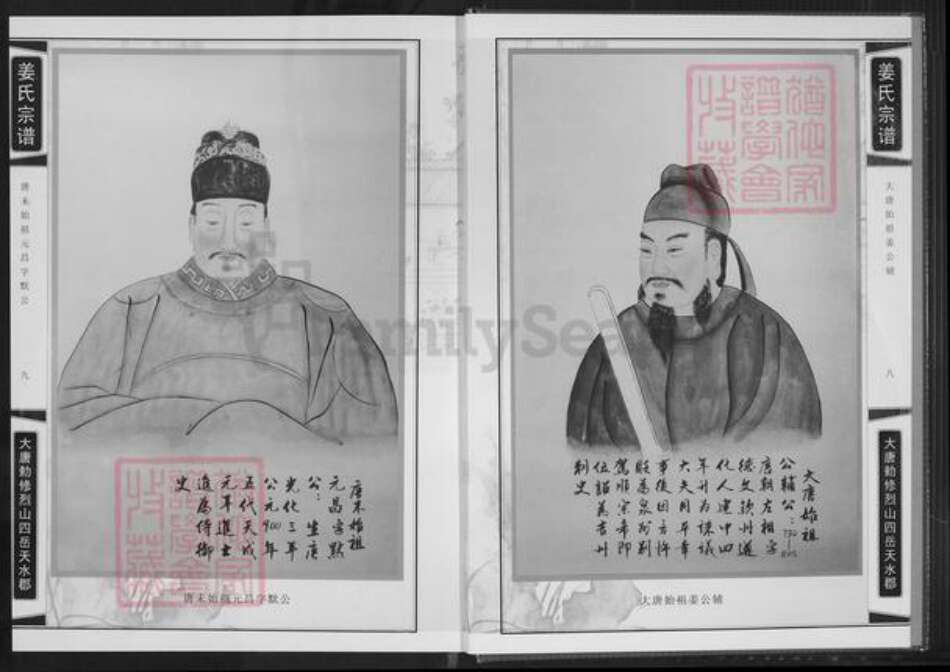 姜氏宗谱
大唐始祖姜公辅
八
大唐勅修烈山四岳天水郡
大唐始祖
公輔公：730—805
唐朝左祖字
德文欽州遵
化人建中四
年升为諫議
大夫同平章
事後因言忤
貶為泉州別
駕順宗希即
位詔為吉州
刺史
大唐始祖姜公辅
唐末始祖
元昌字默
公：生唐
光化三年
公元900年
五代天成
元年進士
進為侍御
史
唐末始祖元昌字默公
姜氏宗谱
唐末始祖元昌字默公
九
大唐勅修烈山四岳天水郡
FamilySea